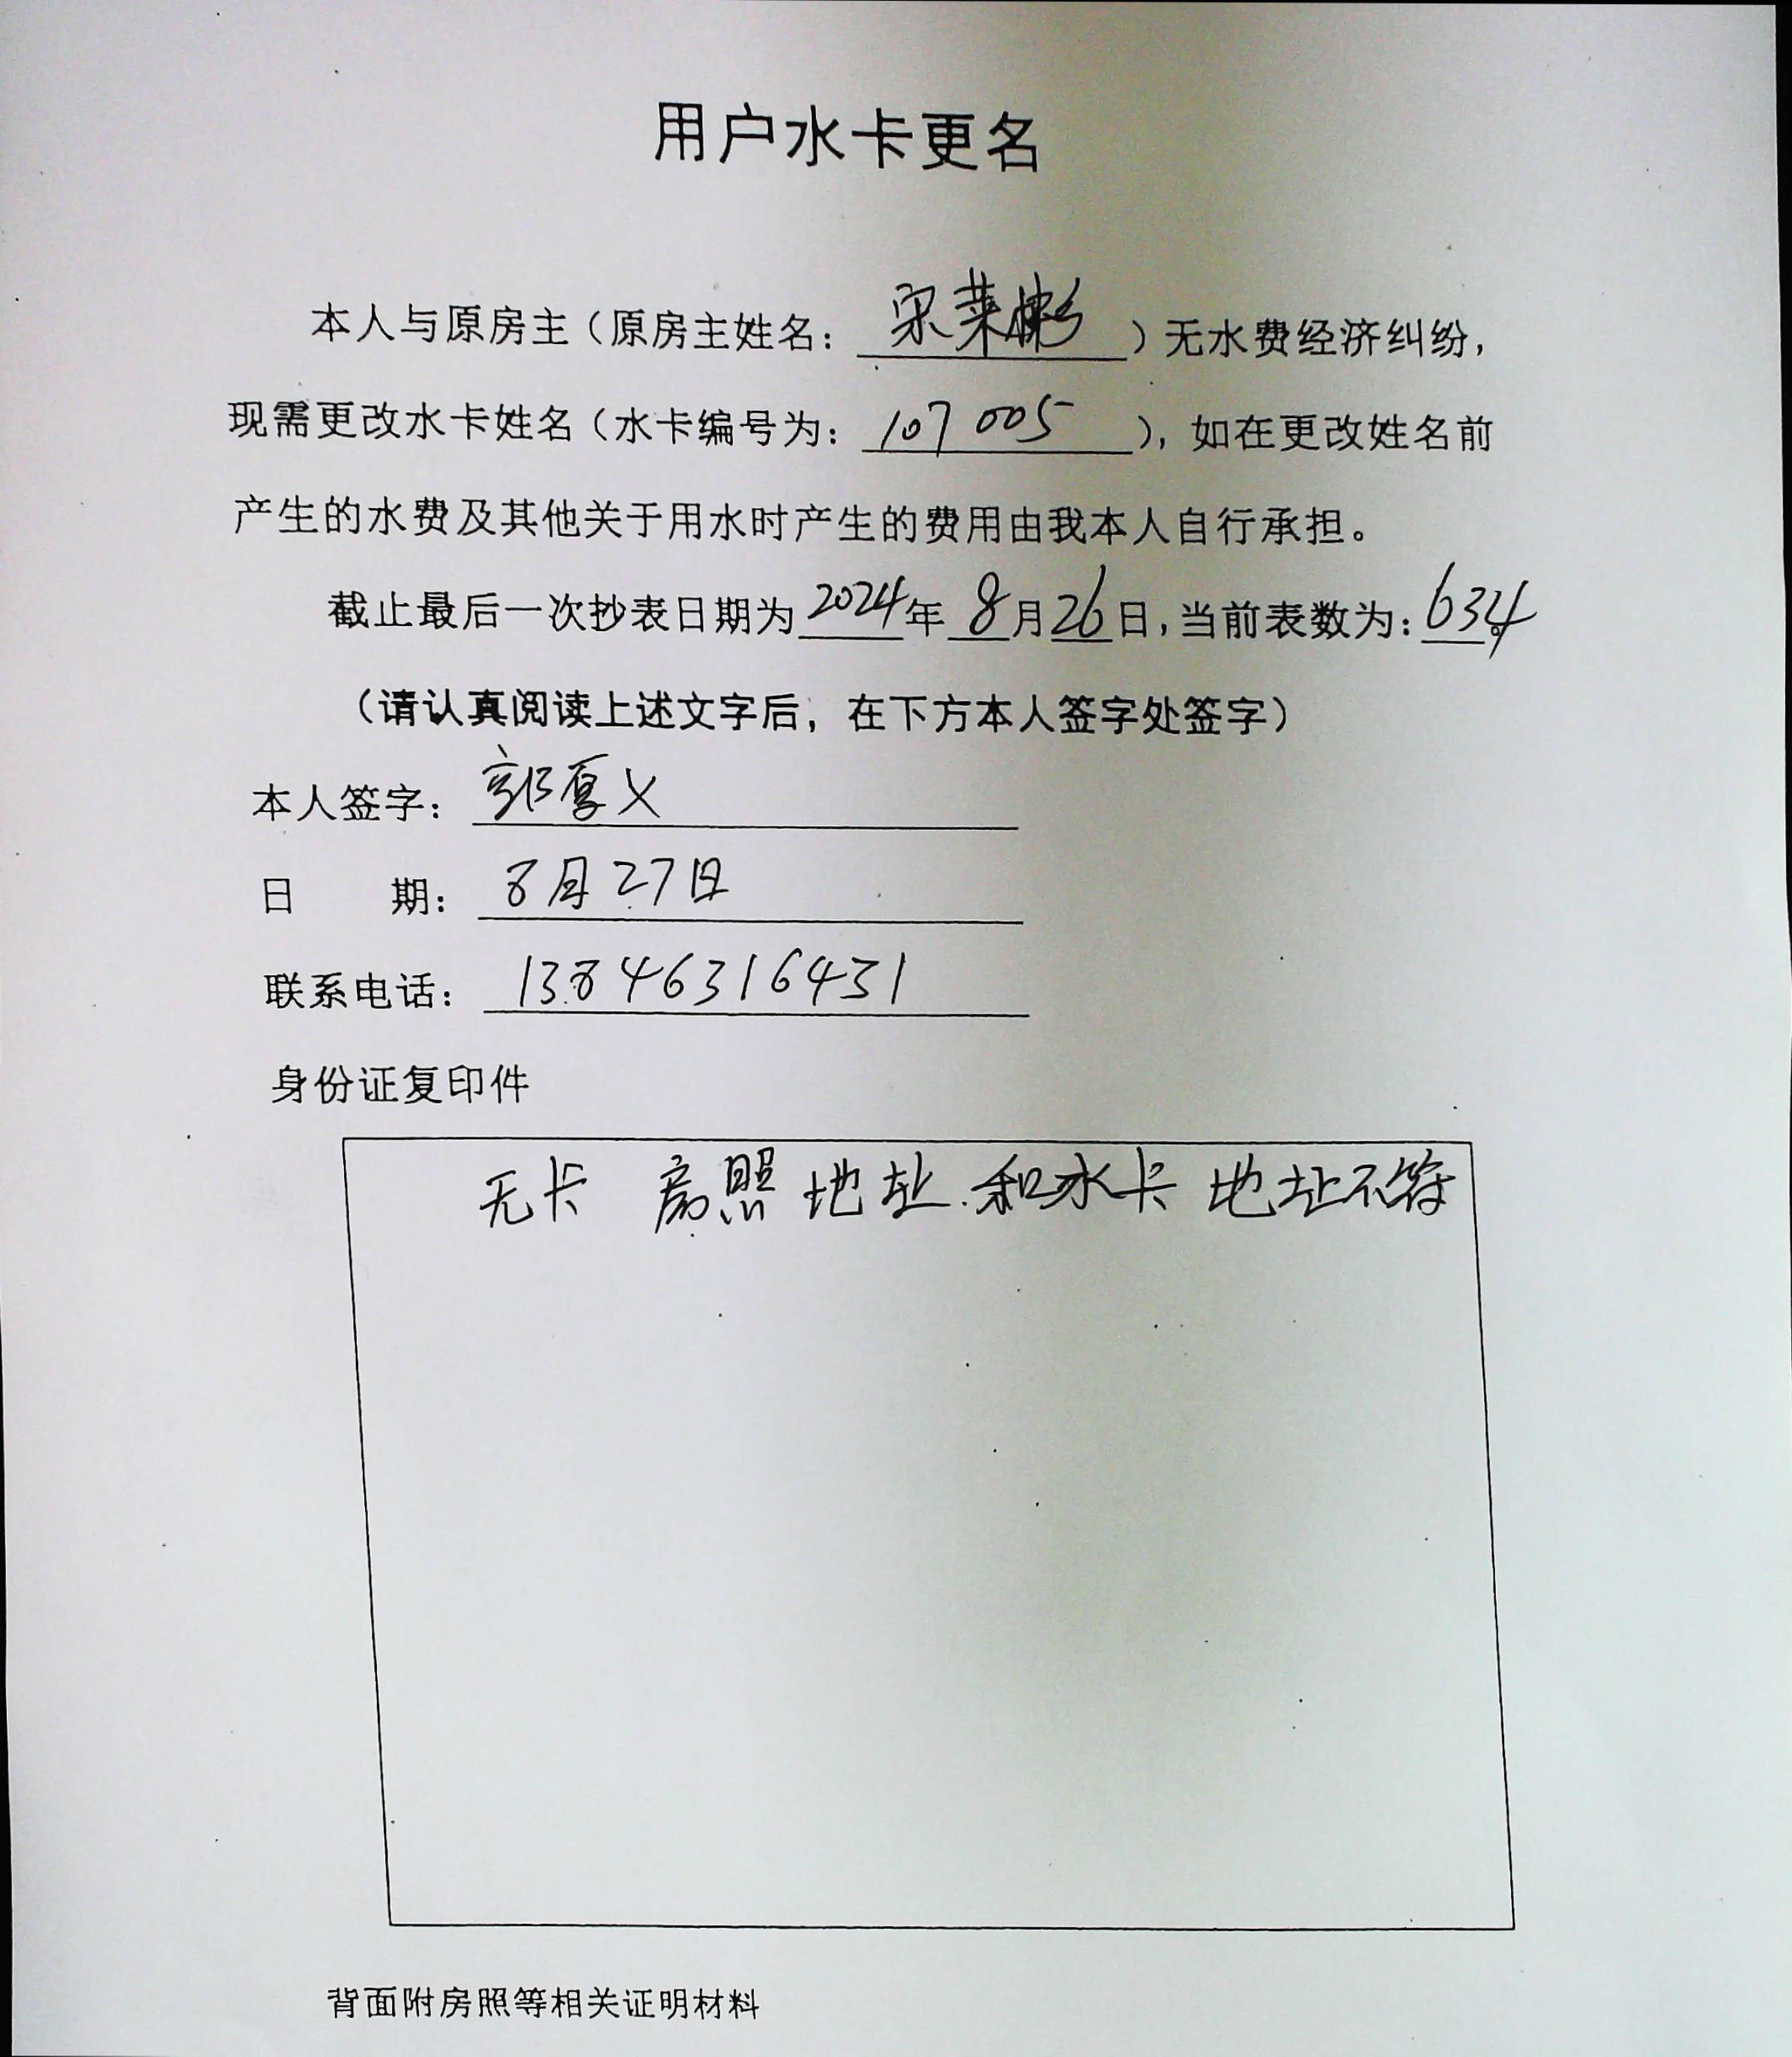 用户水卡更名
本人与原房主（原房主姓名：宋莱彬）无水费经济纠纷，
现需更改水卡姓名（水卡编号为：107005），如在更改姓名前
产生的水费及其他关于用水时产生的费用由我本人自行承担。
截止最后一次抄表日期为2024年8月26日，当前表数为：634。
（请认真阅读上述文字后，在下方本人签字处签字）
本人签字：郭厚义
日 期：8月27日
联系电话：13846316431
身份证复印件
无卡 房照地址和水卡地址不符
背面附房照等相关证明材料